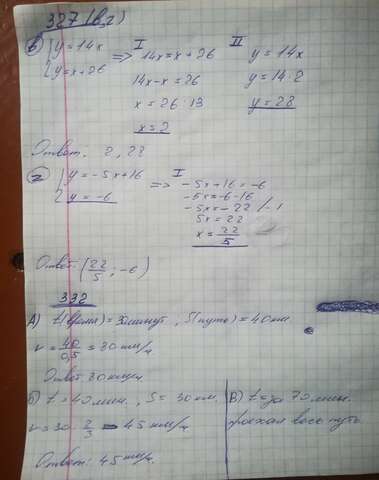 327(в,г)
в) { y = 14x
y = x+26
=> I
14x = x + 26
14x-x = 26
x = 26 : 13
x = 2
II
y = 14x
y = 14 · 2
y = 28
Ответ: 2, 28
г) { y = -5x+16
y = -6
=> I
-5x+16 = -6
-5x = -6-16
-5x = -22 /-1
5x = 22
x = 22/5
Ответ: (22/5; -6)
332
А) t(время) = 30минут, S(путь) = 40км
v = 40/0,5 = 30 км/ч
Ответ 30км/ч
Б) t = 40мин., S = 30 км.
v = 30 · 2/3 = 45 км/ч
Ответ: 45 км/ч.
В) t = за 70мин.
проехал весь путь